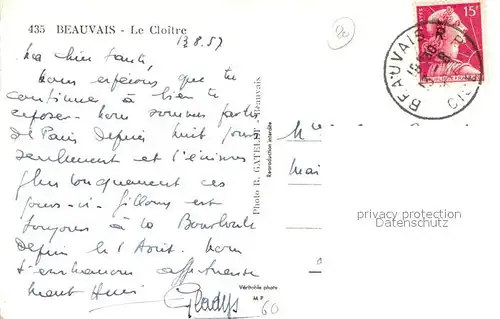 435 BEAUVAIS - Le Cloître
13.8.57
Ma chère
Nous espérons que tu
continues à bien te
reposer. Nous sommes partis
de Paris depuis huit jours
seulement et t'écrirons
plus longuement ces
jours-ci. Gillou est
toujours à la Bourboule
depuis le 1 Août. Nous
t'embrassons affectueusement
Gladys
Photo R. GATELET - Beauvais
Reproduction interdite
Véritable photo
M P
60
15F
BEAUVAIS R.P.
privacy protection
Datenschutz